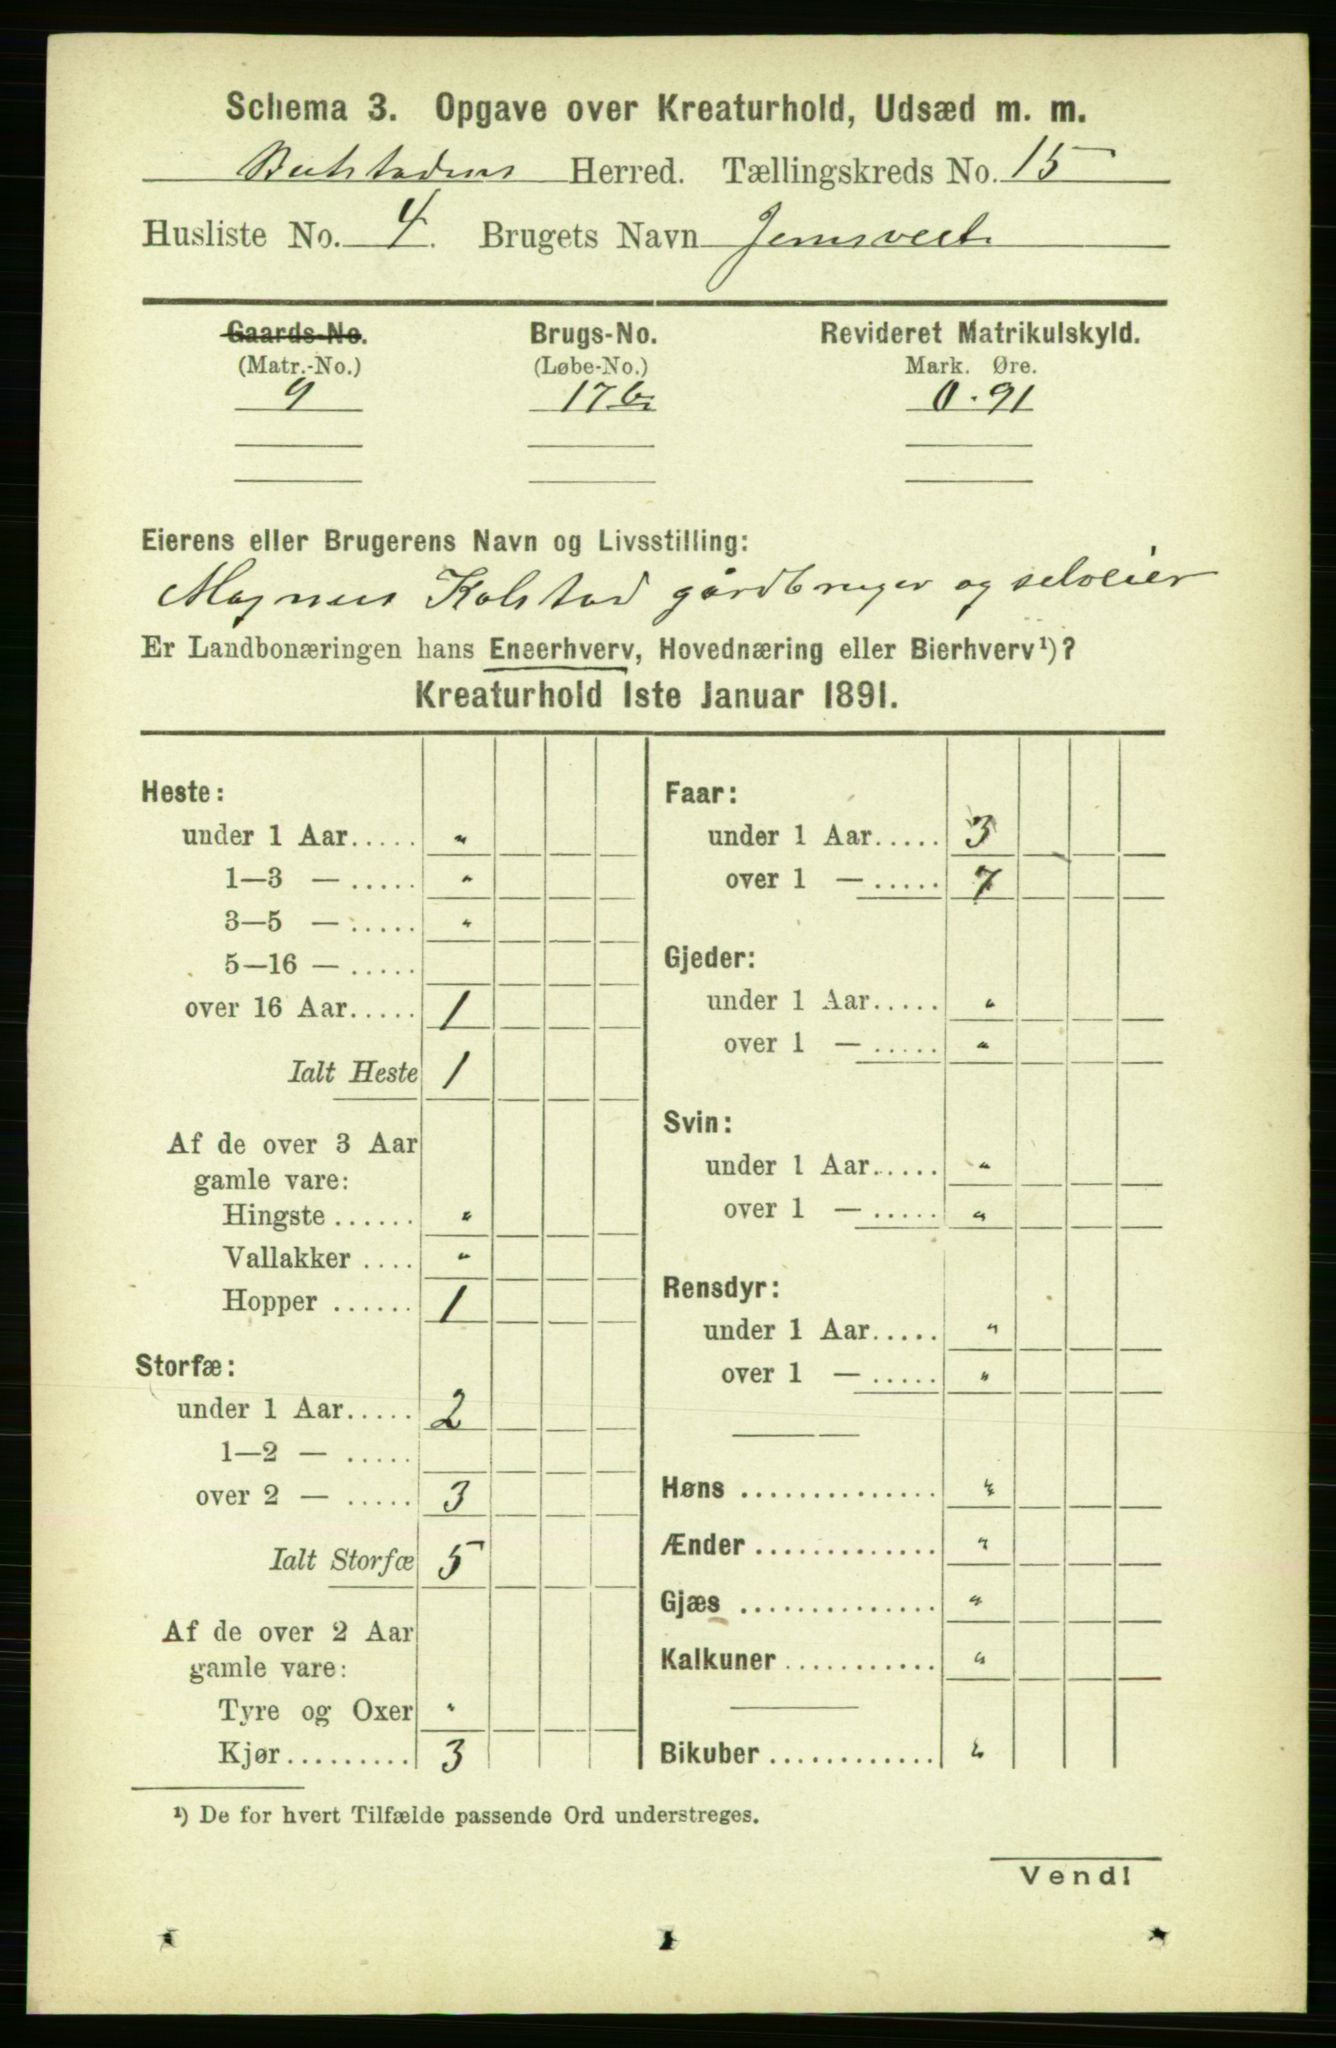 Schema 3. Opgave over Kreaturhold, Udsæd m. m.
Beitstadens Herred. Tællingskreds No. 15
Husliste No. 4. Brugets Navn
Gaards-No. Brugs-No. Revideret Matrikulskyld.
(Matr.-No.) (Løbe-No.) Mark. Øre.
9 17 b 0.91
Eierens eller Brugerens Navn og Livsstilling:
Magnus Kolstad gårdbruger og selveier
Er Landbonæringen hans Eneerhverv, Hovednæring eller Bierhverv¹)?
Kreaturhold 1ste Januar 1891.
Heste:
under 1 Aar..... "
1—3 — ..... "
3—5 — ..... "
5—16 — .....
over 16 Aar..... 1
Ialt Heste 1
Af de over 3 Aar
gamle vare:
Hingste...... "
Vallakker.... "
Hopper...... 1
Storfæ:
under 1 Aar..... 2
1—2 — .....
over 2 — ..... 3
Ialt Storfæ 5
Af de over 2 Aar
gamle vare:
Tyre og Oxer "
Kjør......... 3
Faar:
under 1 Aar..... 3
over 1 — ..... 7
Gjeder:
under 1 Aar..... "
over 1 — ..... "
Svin:
under 1 Aar..... "
over 1 — ..... "
Rensdyr:
under 1 Aar..... "
over 1 — ..... "
Høns.............. "
Ænder............. "
Gjæs.............. "
Kalkuner........... "
Bikuber............ "
¹) De for hvert Tilfælde passende Ord understreges.
Vend!